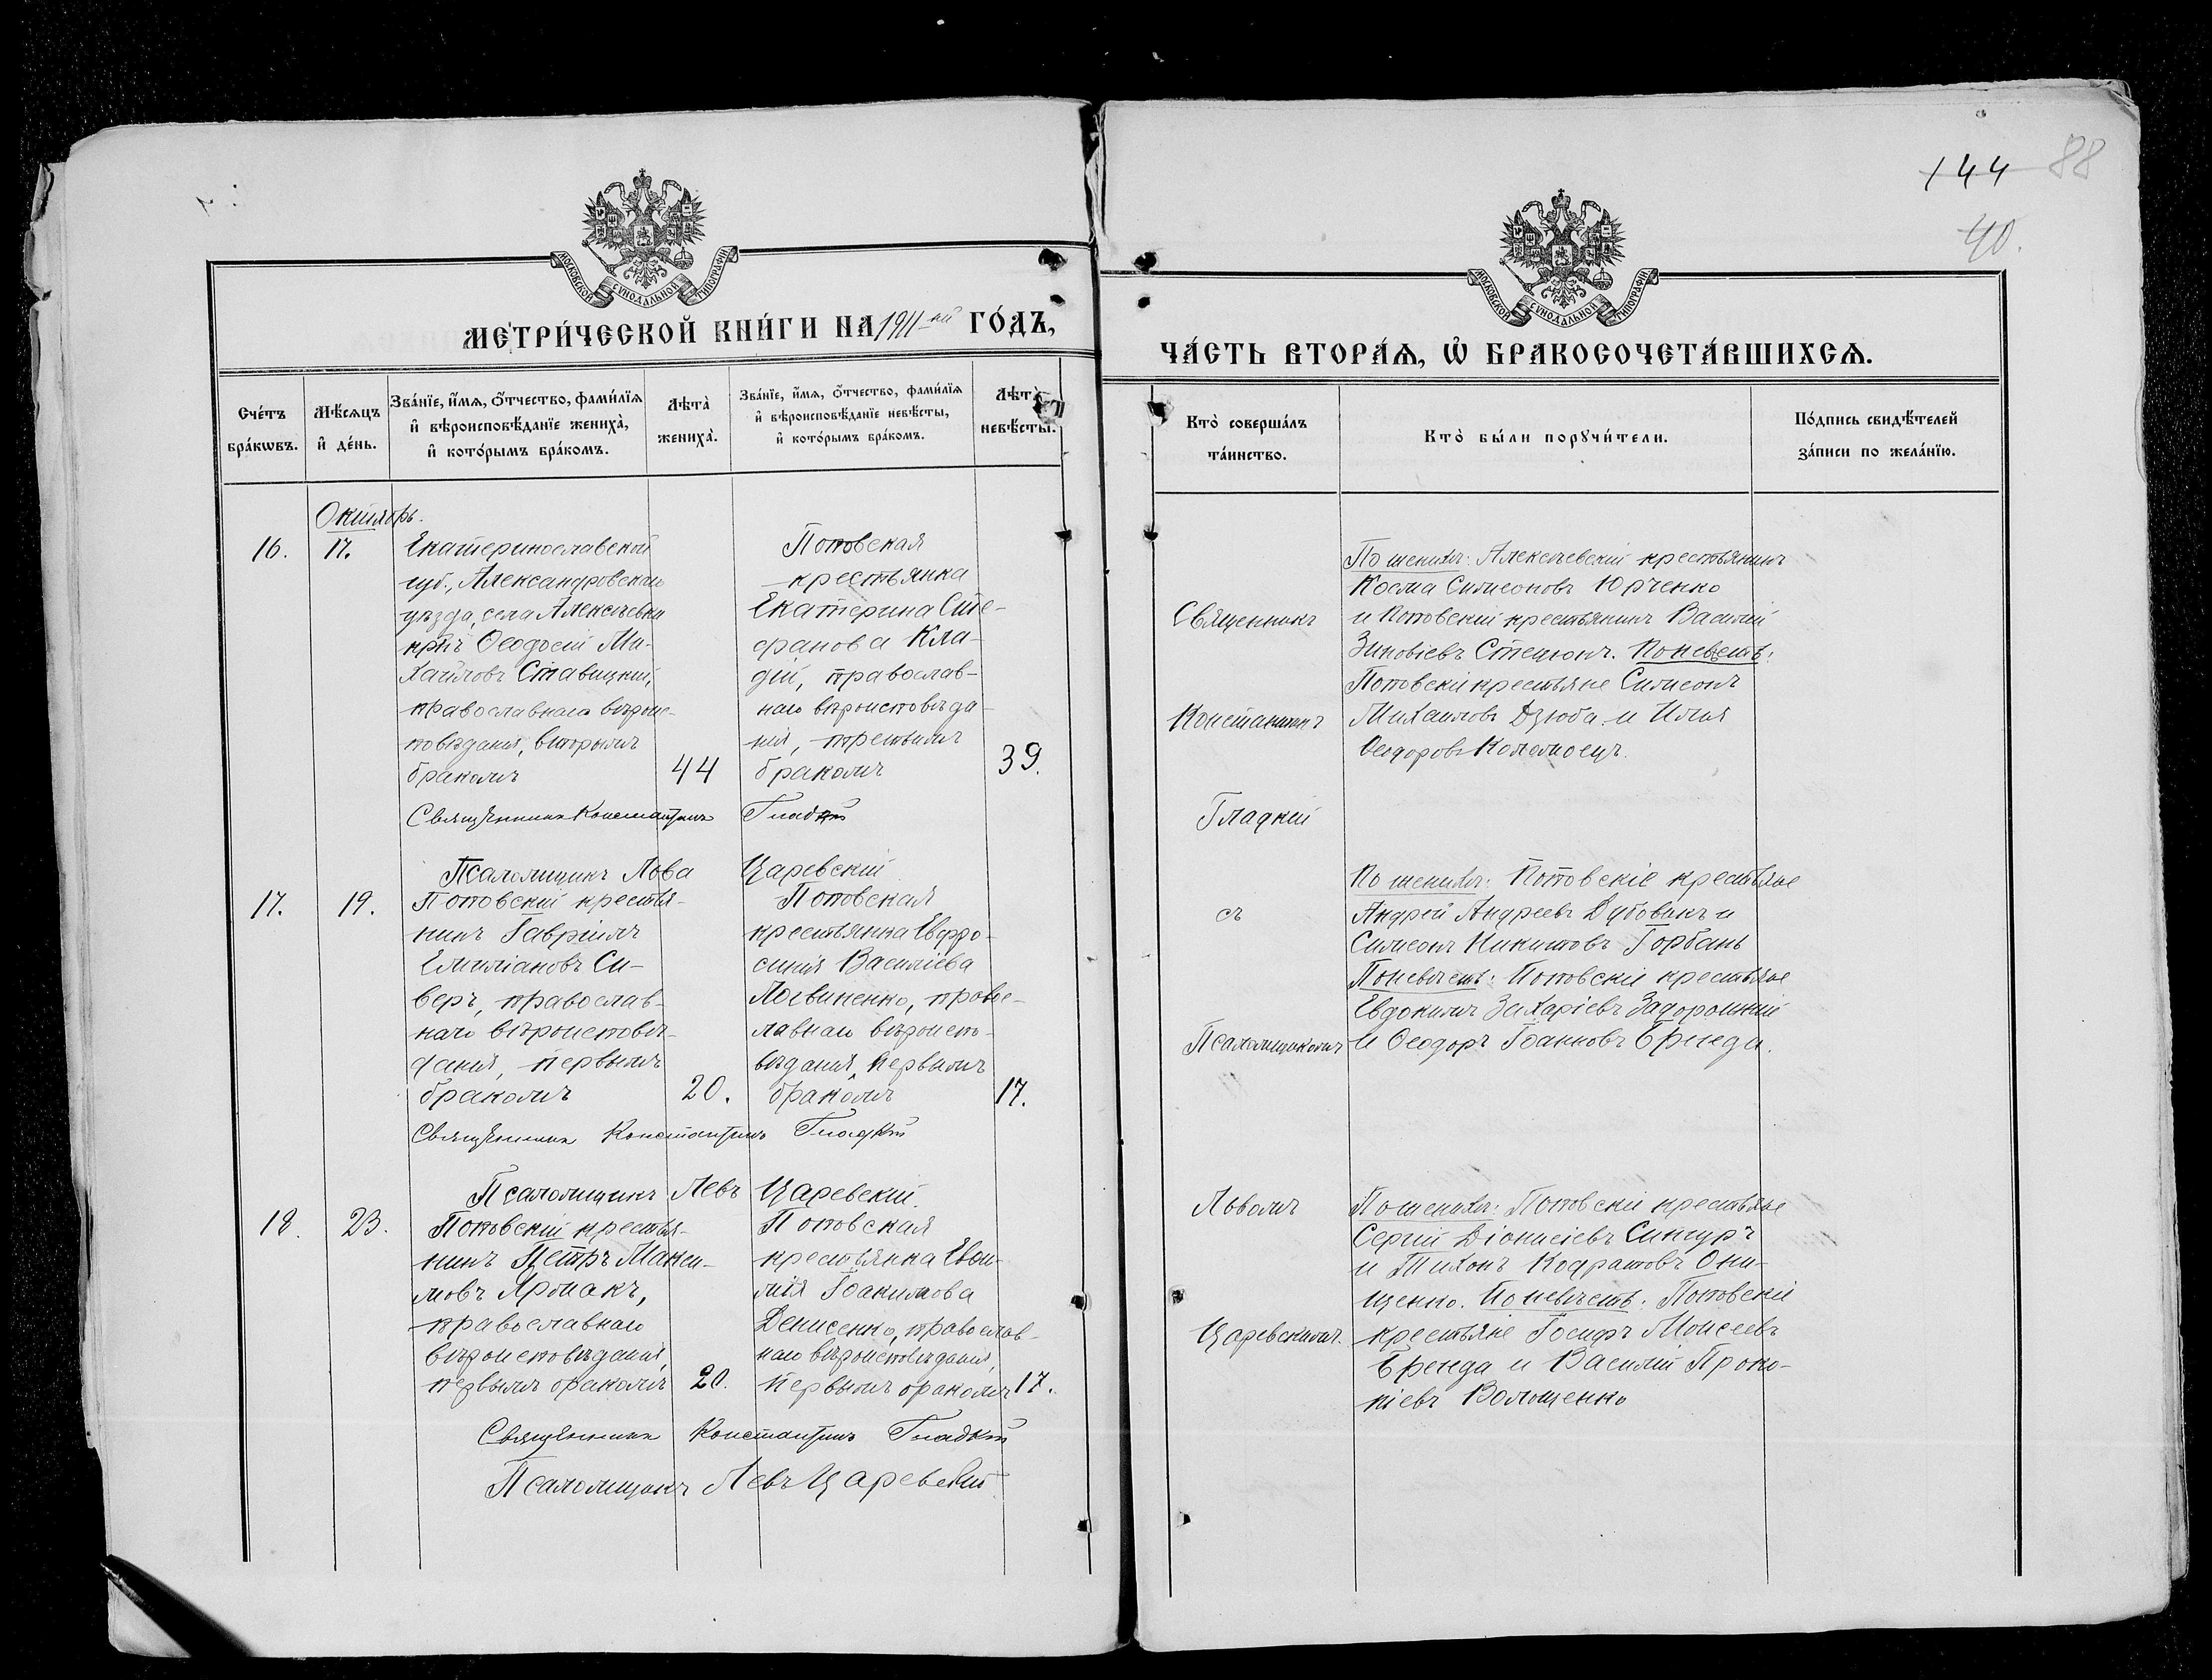 144 88
40.
МОСКОВСКОЙ СУНОДАЛЬНОЙ ТИПОГРАФІИ
МЕТРИ́ЧЕСКОЙ КНИ́ГИ НА 1911-ый ГО́ДЪ,
Сче́тъ бра́кωвъ.
Мѣ́сяцъ и҆ де́нь.
Зва́нїе, и҆́мѧ, ѻ҆́тчество, фами́лїѧ
и҆ вѣроисповѣ́данїе жениха̀,
и҆ кото́рымъ бра́комъ.
Лѣта̀ жениха̀.
Зва́нїе, и҆́мѧ, ѻ҆́тчество, фами́лїѧ
и҆ вѣроисповѣ́данїе невѣ́сты,
и҆ кото́рымъ бра́комъ.
Лѣта̀ невѣ́сты.
Октябрь.
16. 17.
Екатеринославской
губ., Александровскаго
уѣзда, села Алексѣевки
крнъ Ѳеодосій Ми-
хайловъ Ставицкій,
православнаго вѣроис-
повѣданія, вторымъ
бракомъ
44
Поповская
крестьянка
Екатерина Сте-
фанова Кла-
дій, православ-
наго вѣроисповѣда-
нія, третьимъ
бракомъ
39.
Священникъ Константинъ Гладкій
Псаломщикъ Лева Царевскій
17. 19.
Поповскій крестья-
нинъ Гавріилъ
Емиліановъ Си-
веръ, православ-
наго вѣроисповѣ-
данія, первымъ
бракомъ
20.
Поповская
крестьянка Евфро-
синія Василіева
Логвиненко, правос-
лавнаго вѣроиспо-
вѣданія, первымъ
бракомъ
17.
Священникъ Константинъ Гладкій
Псаломщикъ Левъ Царевскій.
18. 23.
Поповскій крестья-
нинъ Петръ Макси-
мовъ Ярмакъ,
православнаго
вѣроисповѣданія,
первымъ бракомъ
20.
Поповская
крестьянка Евѳи-
мія Іоакимова
Денисенко, православ-
наго вѣроисповѣданія,
первымъ бракомъ
17.
Священникъ Константинъ Гладкій
Псаломщикъ Левъ Царевскій
МОСКОВСКОЙ СУНОДАЛЬНОЙ ТИПОГРАФІИ
ЧА́СТЬ ВТОРА́Ѧ, Ѡ҆ БРАКОСОЧЕТА́ВШИХСѦ.
Кто̀ соверша́лъ та́инство.
Кто̀ бы́ли порꙋчи́тели.
По́дпись свидѣ́телей
за́писи по жела́нїю.
Священникъ
Константинъ
Гладкій
съ
Псаломщикомъ
Львомъ
Царевскимъ.
По женихѣ: Алексѣевскій крестьянинъ
Косма Симеоновъ Юрченко
и Поповскій крестьянинъ Василій
Зиновіевъ Стецюкъ. По невѣстѣ:
Поповскіе крестьяне Симеонъ
Михаиловъ Дзюба и Илія
Ѳеодоровъ Коломоецъ.
По женихѣ: Поповскіе крестьяне
Андрей Андреевъ Дубовикъ и
Симеонъ Никитовъ Горбань
По невѣстѣ: Поповскіе крестьяне
Евдокимъ Захаріевъ Задорожній
и Ѳеодоръ Іоанновъ Бренда.
По женихѣ: Поповскіе крестьяне
Сергій Діонисіевъ Сингуръ
и Тихонъ Кодратовъ Они-
щенко. По невѣстѣ: Поповскіе
крестьяне Іосифъ Моисеевъ
Бренда и Василій Проко-
піевъ Волощенко